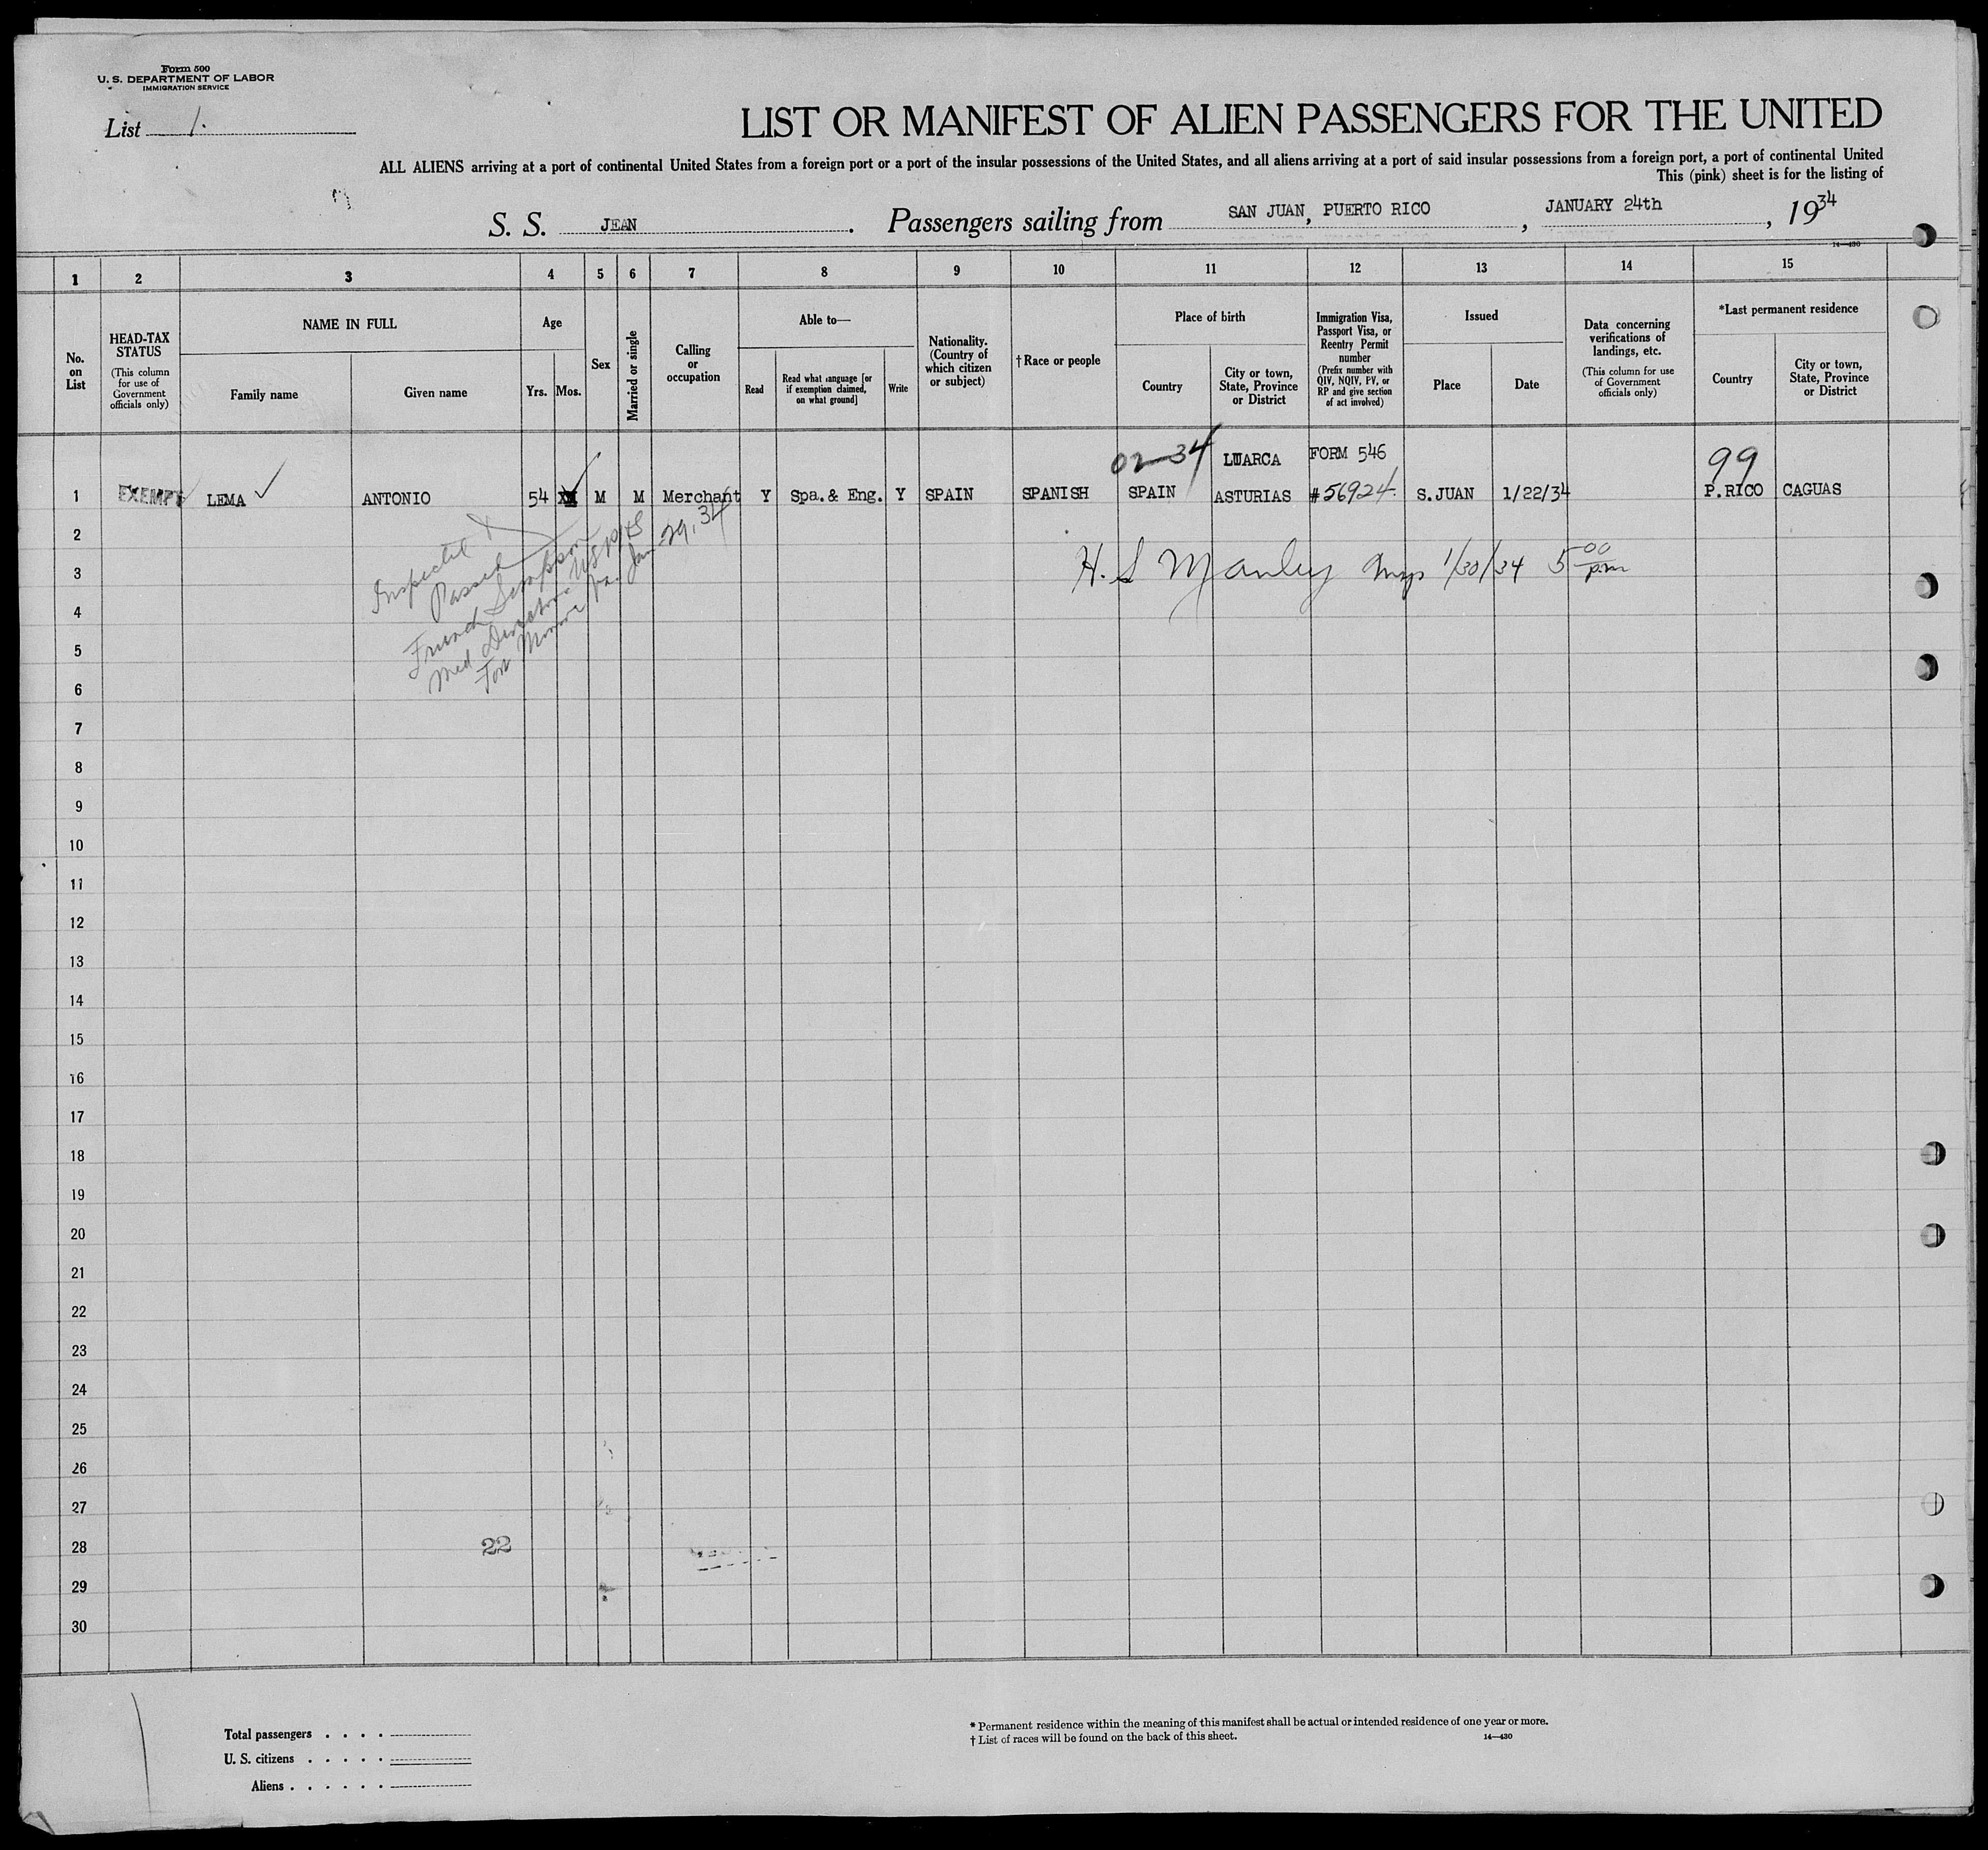 Form 500
U. S. DEPARTMENT OF LABOR
IMMIGRATION SERVICE
List 1.
LIST OR MANIFEST OF ALIEN PASSENGERS FOR THE UNITED
ALL ALIENS arriving at a port of continental United States from a foreign port or a port of the insular possessions of the United States, and all aliens arriving at a port of said insular possessions from a foreign port, a port of continental United
This (pink) sheet is for the listing of
S. S. JEAN. Passengers sailing from SAN JUAN, PUERTO RICO, JANUARY 24th, 1934
14—430
1 2 3 4 5 6 7 8 9 10 11 12 13 14 15
No. on List
HEAD-TAX STATUS
(This column for use of Government officials only)
NAME IN FULL
Family name
Given name
Age
Yrs.
Mos.
Sex
Married or single
Calling or occupation
Able to—
Read
Read what language [or if exemption claimed, on what ground]
Write
Nationality. (Country of which citizen or subject)
†Race or people
Place of birth
Country
City or town, State, Province or District
Immigration Visa, Passport Visa, or Reentry Permit number
(Prefix number with QIV, NQIV, PV, or RP and give section of act involved)
Issued
Place
Date
Data concerning verifications of landings, etc.
(This column for use of Government officials only)
*Last permanent residence
Country
City or town, State, Province or District
02-34 LUARCA FORM 546 99
1 EXEMPT LEMA ANTONIO 54 M M Merchant Y Spa. & Eng. Y SPAIN SPANISH SPAIN ASTURIAS #56924. S.JUAN 1/22/34 P.RICO CAGUAS
Inspected &
Passed
French Simpson
Med Director USPHS
Fort Monroe Va. Jan 29, 34
H. S Manley 1/30/34 5 00 p.m
2
3
4
5
6
7
8
9
10
11
12
13
14
15
16
17
18
19
20
21
22
23
24
25
26
27
28 22
29
30
Total passengers . . . .
U. S. citizens . . . . .
Aliens . . . . . .
* Permanent residence within the meaning of this manifest shall be actual or intended residence of one year or more.
† List of races will be found on the back of this sheet. 14—430